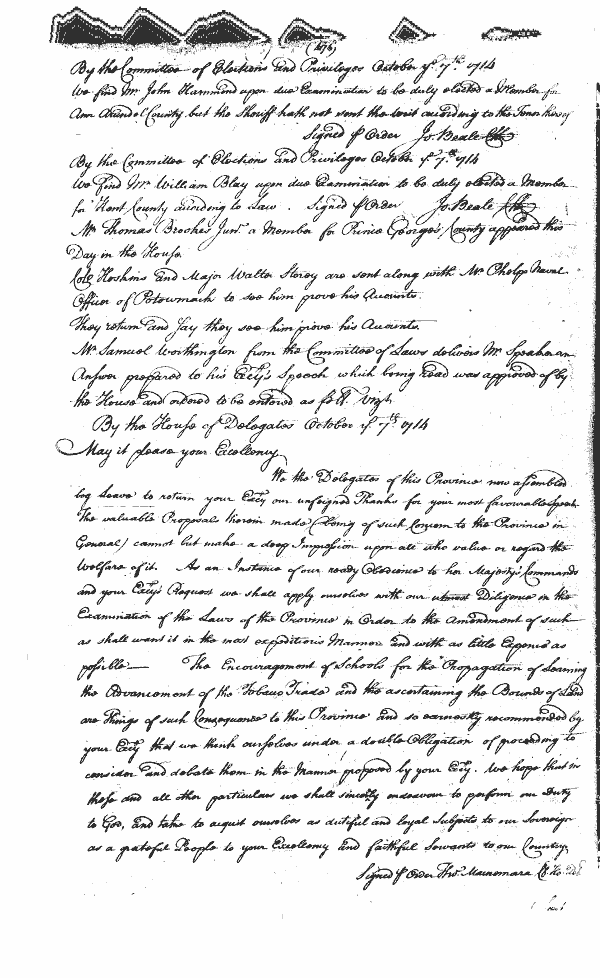 (476)
By the Committee of Elections and Priviledges October ye 7th 1714
We find Mr John Hammond upon due Examination to be duly elected a Member for
Ann Arundel County but the Sheriff hath not sent the writ according to the Tenor thereof
Signed p Order Jo. Beale Clk
By the Committee of Elections and Priviledges October ye 7th 1714
We find Mr William Blay upon due Examination to be duly elected a Member
for Kent County according to Law. Signed p Order Jo. Beale Clk
Mr Thomas Brooke Junr a Member for Prince George's County appeared this
Day in the House
Colo Hoskins and Major Walter Storey are sent along with Mr Phelps Naval
Officer of Potowmack to see him prove his Accounts.
They return and say they see him prove his Accounts.
Mr Samuel Worthington from the Committee of Laws delivers Mr Speaker an
Answer prepared to his Excys Speech which being read was approved of by
the House and ordered to be entered as foll. Vizt
By the House of Delegates October ye 7th 1714
May it please your Excellency
We the Delegates of this Province now assembled
beg Leave to return your Excy our unfeigned Thanks for your most favourable Speech
The valuable Proposals therein made (being of such Concern to the Province in
General) cannot but make a deep Impression upon all who value or regard the
Welfare of it. As an Instance of our ready Obedience to her Majestys Commands
and your Excys Request we shall apply ourselves with our utmost Diligence in the
Examination of the Laws of the Province in Order to the Amendment of such
as shall want it in the most expeditious Manner and with as little Expence as
possible The Encouragement of Schools for the Propagation of Learning
the Advancement of the Tobacco Trade and the ascertaining the Bounds of Land
are Things of such Consequence to this Province and so earnestly recommended by
your Excy that we think ourselves under a double Obligation of proceeding to
consider and debate them in the Manner proposed by your Excy. We hope that in
these and all other particulars we shall sincerely endeavour to perform our Duty
to God, and take to acquit ourselves as dutiful and loyal Subjects to our Sovereign
as a grateful People to your Excellency and faithful Servants to our Country
Signed p Order Thos Macnemara Cl. Ho. Del